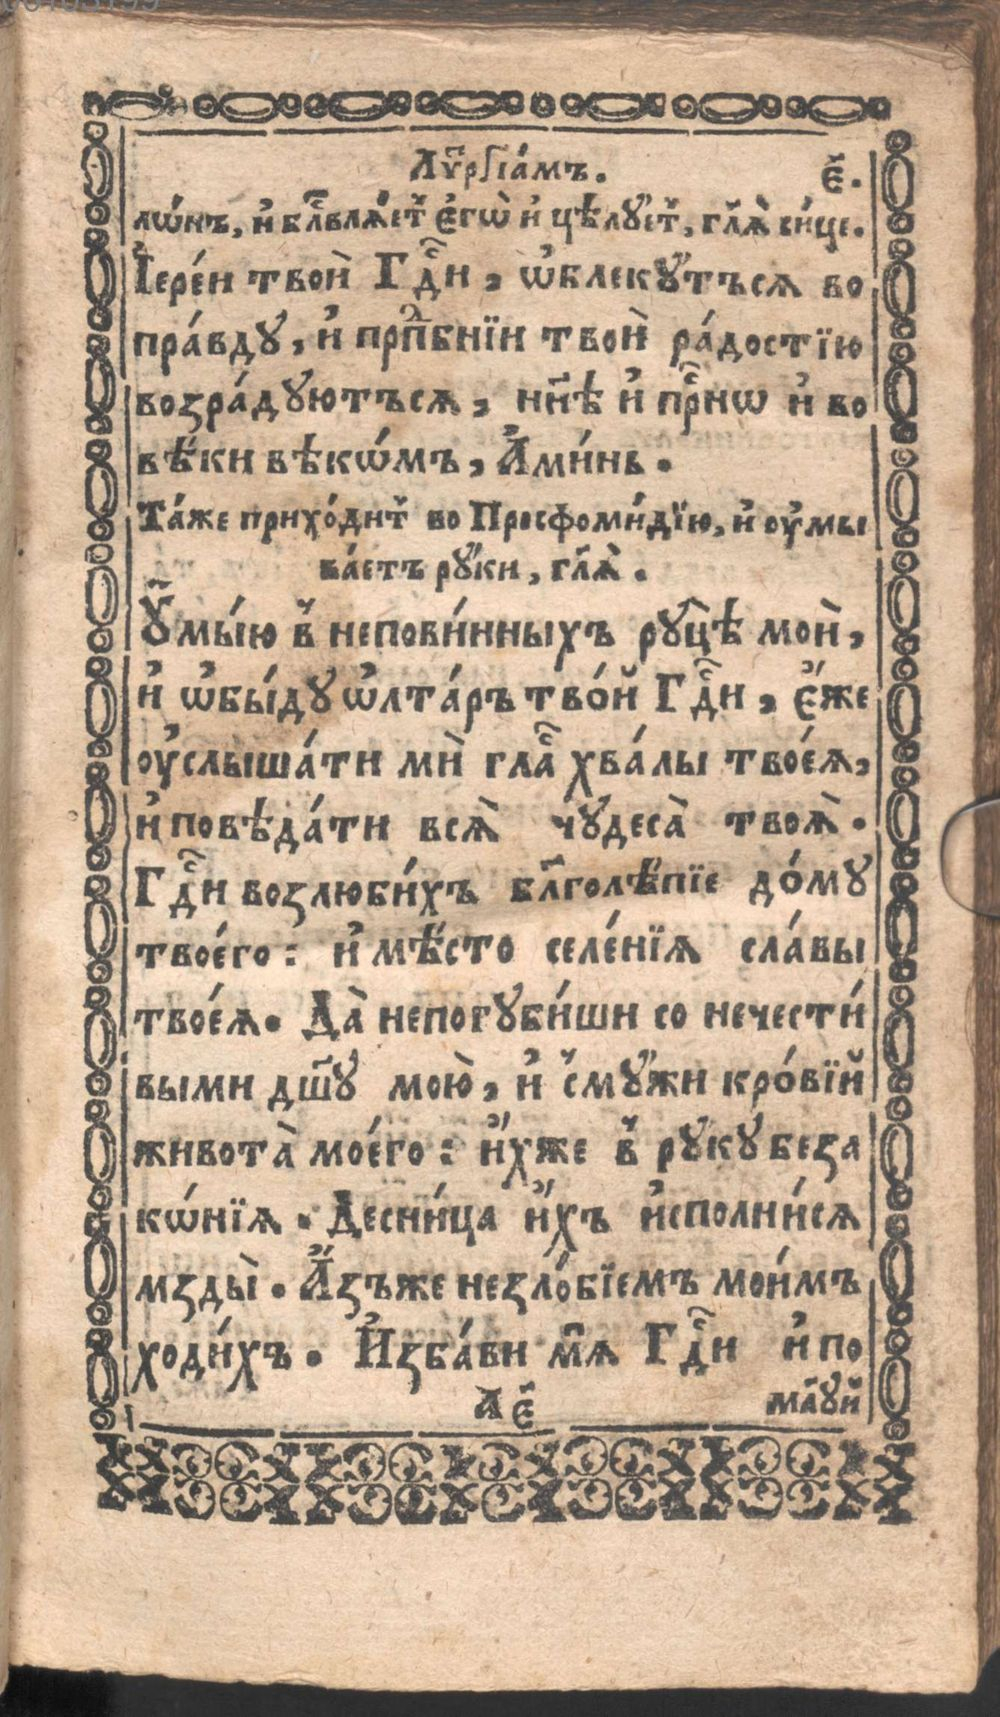 Лѵ҃ргїа́мъ. є҃.
лѡ́нъ, и҆ бл҃вля́єт̾ є҆гѡ̀ и҆ цѣлꙋ́єт̾, гл҃ѧ̀ си́це.
І҆ере́и твои̇̀ Гдⷭ҇и, ѡ҆блекꙋ́тъсѧ во
пра́вдꙋ, и҆ прпⷣбнїи твои̇̀ ра́достїю
возра́дꙋютъсѧ, нн҃ѣ и҆ прⷭ҇нѡ и҆ во
вѣ́ки вѣкѡ́мъ, А҆ми́нь.
Та́же прихо́дит̾ во Просфоми́дїю, и҆ оу҆мы
ва́етъ рꙋ́ки, гл҃ѧ̀.
Оу҆мы́ю в̾ непови́нныхъ рꙋ́цѣ мои̇̀,
и҆ ѡ҆бы́дꙋ ѡ҆лта́ръ тво́й Гдⷭ҇и, є҆́же
оу҆слыша́ти мѝ глаⷭ҇ хва́лы твое́ѧ,
и҆ повѣ́дати всѧ̀ чꙋдеса̀ твоѧ̀.
Гдⷭ҇и возлюби́хъ бл҃голѣ́пїе до́мꙋ
твое́го: и҆ мѣ́сто селе́нїѧ сла́вы
твое́ѧ. Да̀ непогꙋби́ши со нечести́
выми дш҃ꙋ мою̀, и҆ с̾мꙋ́жи кро́вїй
живота̀ мое́го: и҆́хже в̾ рꙋкꙋ беза
кѡ́нїѧ. Десни́ца и҆́хъ и҆сполни́сѧ
мзды̀. А҆́зъже незло́бїемъ мои́мъ
ходи́хъ. И҆зба́ви мѧ Гдⷭ҇и и҆ по
А є҃ мл҃ꙋй